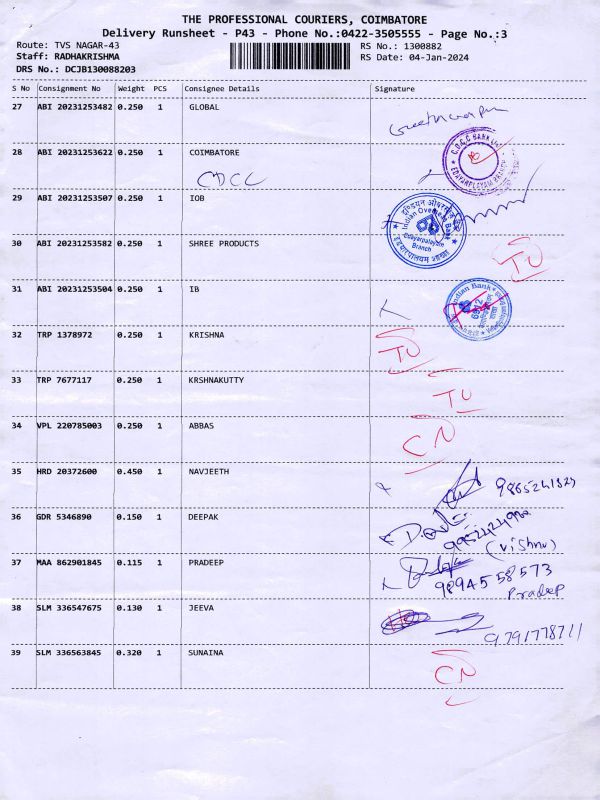 THE PROFESSIONAL COURIERS, COIMBATORE
Delivery Runsheet - P43 - Phone No.:0422-3505555 - Page No.:3
Route: TVS NAGAR-43 RS No.: 1300882
Staff: RADHAKRISHMA RS Date: 04-Jan-2024
DRS No.: DCJB130088203
S No Consignment No Weight PCS Consignee Details Signature
27 ABI 20231253482 0.250 1 GLOBAL
28 ABI 20231253622 0.250 1 COIMBATORE
CDCC
C.D.C.C BANK
EDAYARPALAYAM BRANCH
29 ABI 20231253507 0.250 1 IOB
Indian Overseas Bank
Edayarpalayam
Branch
30 ABI 20231253582 0.250 1 SHREE PRODUCTS
TU
31 ABI 20231253504 0.250 1 IB
Indian Bank
32 TRP 1378972 0.250 1 KRISHNA
TU
33 TRP 7677117 0.250 1 KRSHNAKUTTY
TU
34 VPL 220785003 0.250 1 ABBAS
CN
35 HRD 20372600 0.450 1 NAVJEETH
36 GDR 5346890 0.150 1 DEEPAK
(Vishnu)
37 MAA 862901845 0.115 1 PRADEEP
9894558573
Pradeep
38 SLM 336547675 0.130 1 JEEVA
39 SLM 336563845 0.320 1 SUNAINA
CN